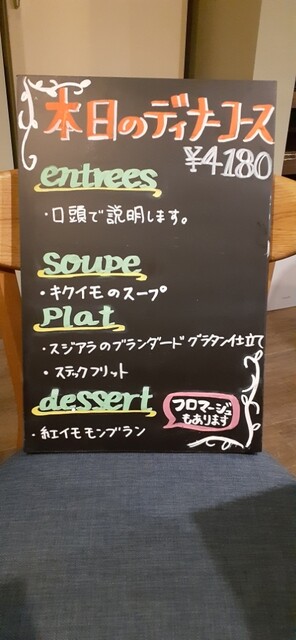 本日のディナーコース
¥4.180
entrees
・口頭で説明します。
soupe
・キクイモのスープ
Plat
・スジアラのブランダード グラタン仕立て
・ステックフリット
dessert
・紅イモモンブラン
フロマージュ
もあります